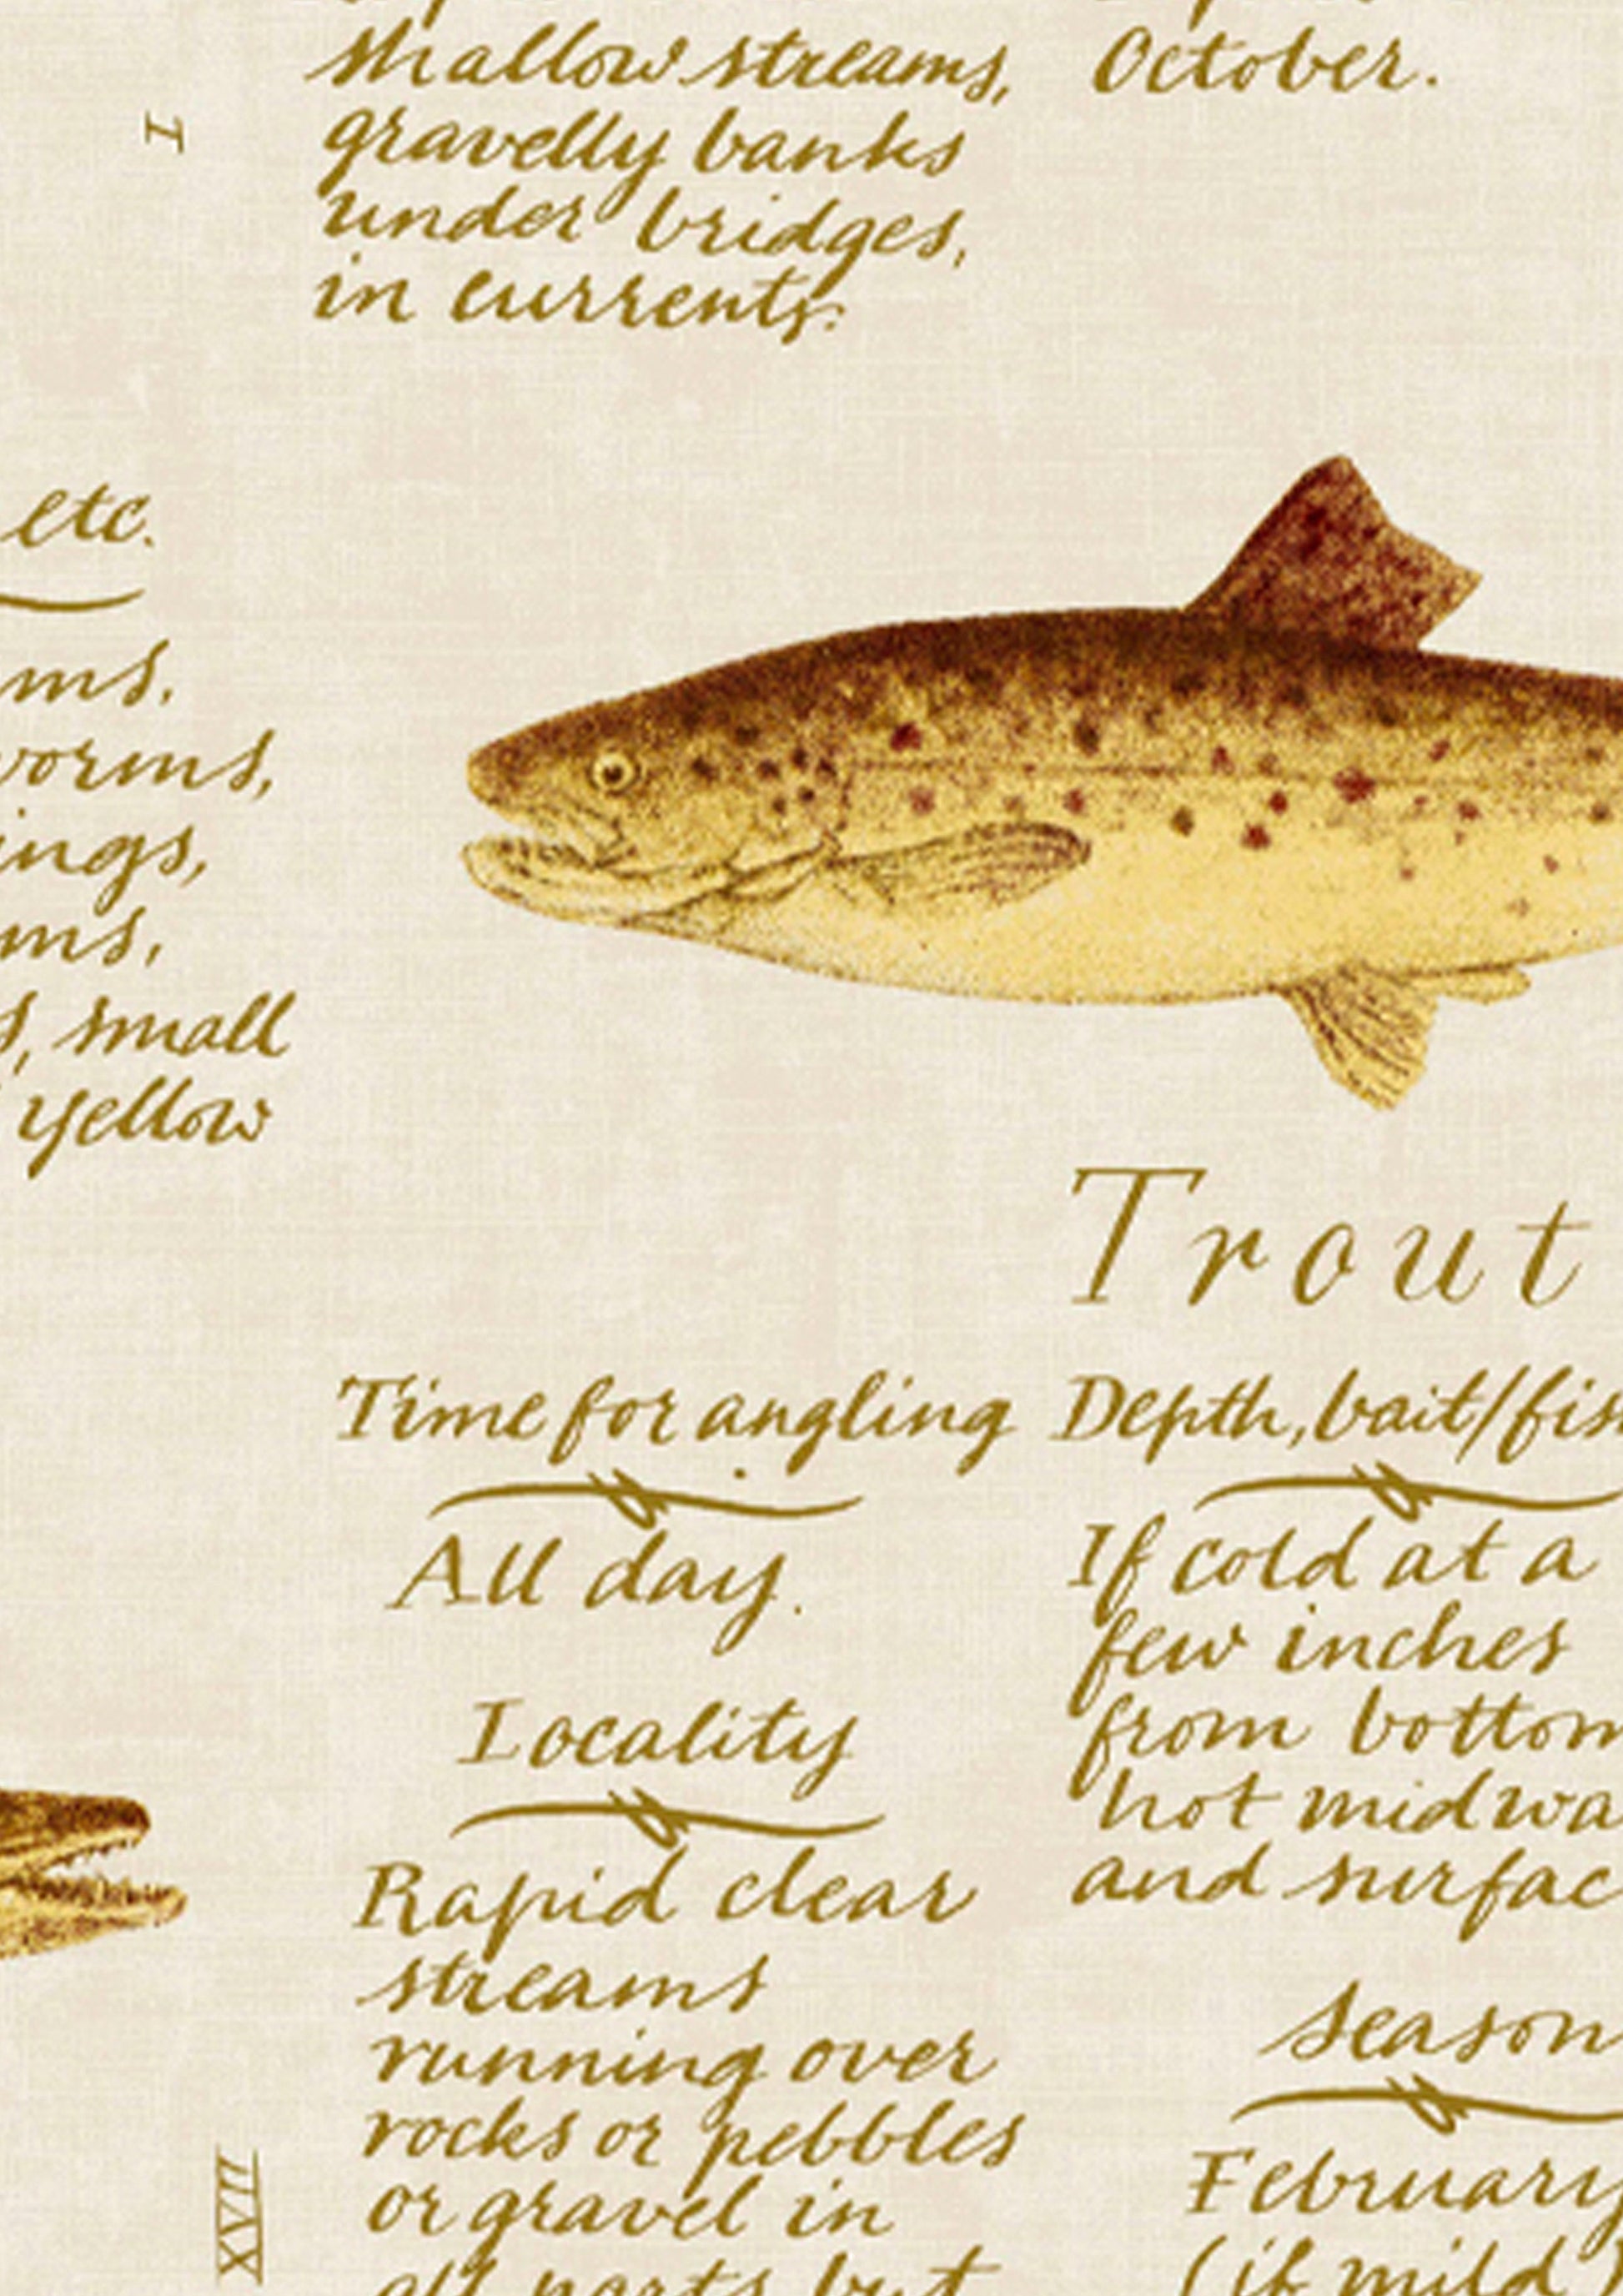 shallow streams,
gravelly banks
under bridges,
in currents.
October.
I
etc.
ms.
worms,
ings,
ms,
s, small
yellow
Trout
Time for angling
All day.
Locality
Rapid clear
streams
running over
rocks or pebbles
or gravel in
all parts but
Depth, bait/fis
If cold at a
few inches
from bottom
hot midwa
and surfac
Season
February
(if mild)
XVII